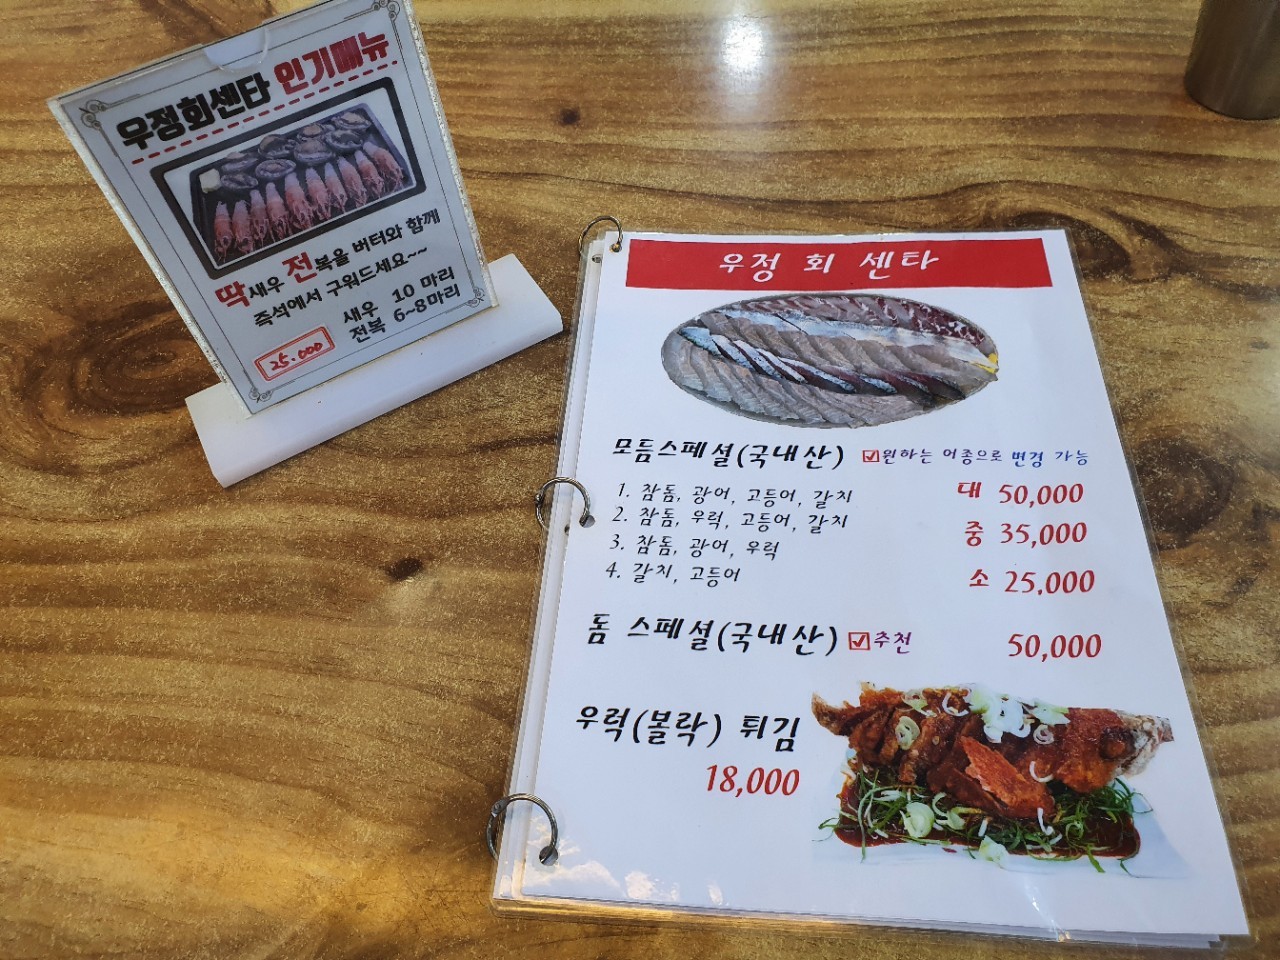 우정회센타 인기메뉴
딱새우 전복을 버터와 함께
즉석에서 구워드세요~~
새우 10 마리
전복 6~8마리
25.000
우정 회 센타
모듬스페셜(국내산) ☑원하는 어종으로 변경 가능
1. 참돔, 광어, 고등어, 갈치
대 50,000
2. 참돔, 우럭, 고등어, 갈치
중 35,000
3. 참돔, 광어, 우럭
4. 갈치, 고등어
소 25,000
돔 스페셜(국내산) ☑추천 50,000
우럭(볼락) 튀김
18,000